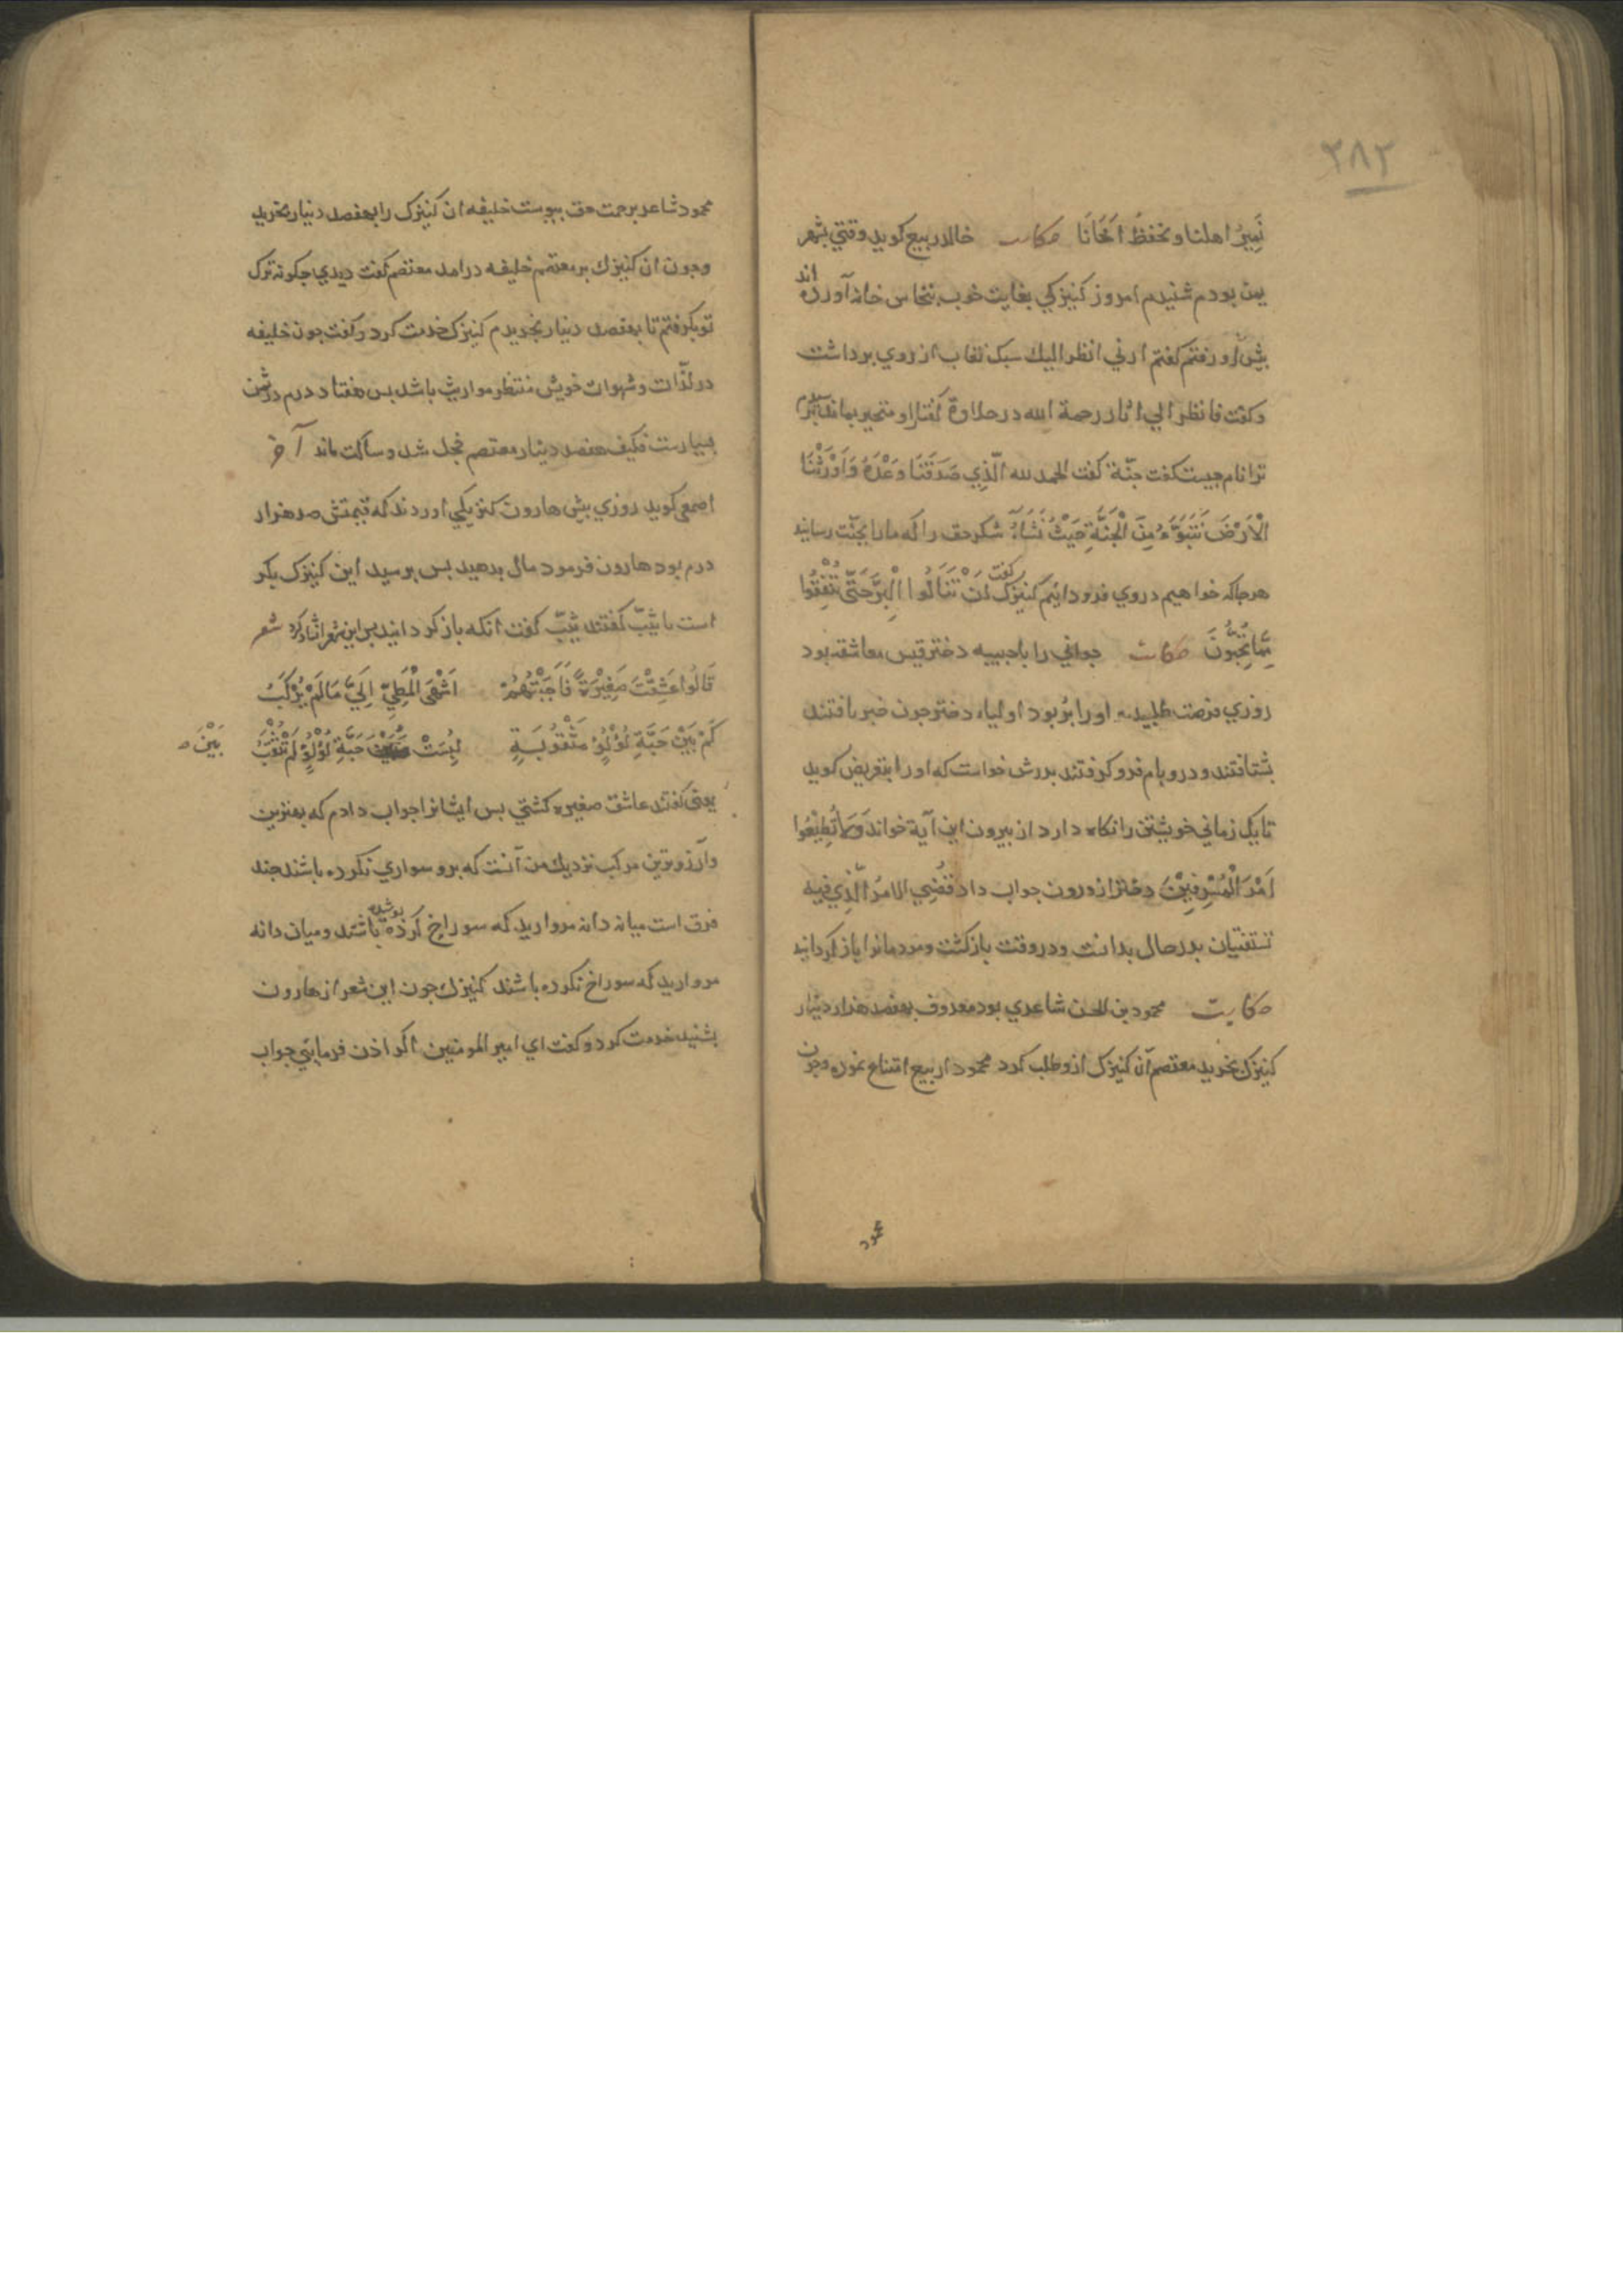 ۳۸۲
نَمِيرُ اهلنا و نحفظُ اَخَانَا حکایت خالد ربیع کوید وقتي بشهر
یمن بودم شنیدم امروز کنیزکي بغایت خوب بنخاس خانه آورده اند
بیش او رفتم کفتم ارني انظر الیك سبك نقاب از روي برداشت
وکفت فانظر الي اثار رحمة الله در حلاوة کفتار او متحیر بماندم
ترا نام جیست کفت جنّة کفت الحمد لله الَّذِي صَدَقَنَا وَعْدَهُ وَاَوْرَثْنَا
الْاَرْضَ نَتَبَوَّءُ مِنَ الْجَنَّةِ حَيْثُ نَشَاءُ شکر حق را که ما را بجنّت رسانید
هر جا که خواهیم در وي فرود ائیم کنیزك کفت لَنْ تَنَالُوا الْبِرَّ حَتَّى تُنْفِقُوا
مِمَّا تُحِبُّونَ حکایت جواني را با حبیبه دختر قیس معاشقه بود
روزي فرصت طلبیده او را بربود اولیاء دختر جون خبر یافتند
بشتافتند و در و بام فرو کرفتند بدرش خواست که او را بتعریض کوید
تا یك زماني خویشتن را نکاه دارد از بیرون این آیة خواند وَلَا تُطِيعُوا
اَمْرَ الْمُسْرِفِيْنَ دختر از درون جواب داد قُضِي الامرُ الَّذِي فيه
تستفتیان بدر حال بدانست و در وقت بازکشت و مردمانرا باز کردانید
حکایت محمود بن الحسن شاعري بود معروف بهفصد هزار دینار
کنیزك بخرید معتصم آن کنیزك ازو طلب کرد محمود از بیع امتناع نموده وجون
محمود
محمود شاعر برحمت حق بیوست خلیفه ان کنیزك را بهفصد دینار بخرید
وجون ان کنیزك بر معتصم خلیفه درامد معتصم کفت دیدي جکونه ترك
تو بکرفتم تا بهفصد دینار بخریدم کنیزك خدمت کرد و کفت جون خلیفه
در لذّات و شهوات خویش منتظر مواریث باشد بس هفتاد درم در ثمن
بسیارست فکیف هفصد دینار معتصم خجل شد و ساکت ماند آخر
اصمعي کوید روزي بیش هارون کنیزکي اوردند که قیمتش صد هزار
درم بود هارون فرمود مال بدهید بس برسید این کنیزك بکر
است یا ثیّب کفتند ثیّب کفت انکه باز کردانید بس این شعر انشاد کرد شعر
قَالُوا عَشِقْتَ صَغِيْرَةً فَاَجَبْتُهُمْ اَشْهَى الْمَطِيِّ اِلَيَّ مَا لَمْ يُرْكَبُ
كَمْ بَيْنَ حَبَّةِ لُؤْلُؤٍ مَثْقُوْبَةٍ لُبِسَتْ حَبَّةِ لُؤْلُؤٍ لَمْ تُثْقَبُ
بَيْنَ
یعني کفتند عاشق صغیره کشتي بس ایشانرا جواب دادم که بهترین
وآرزوترین مرکب نزدیك من آنست که برو سواري نکرده باشند جند
فرق است میانه دانه مروارید که سوراخ کرده بوشیده باشند و میان دانه
مروارید که سوراخ نکرده باشند کنیزك جون این شعر از هارون
بشنید خدمت کرد و کفت اي امیر المومنین اکر اذن فرمایي جواب